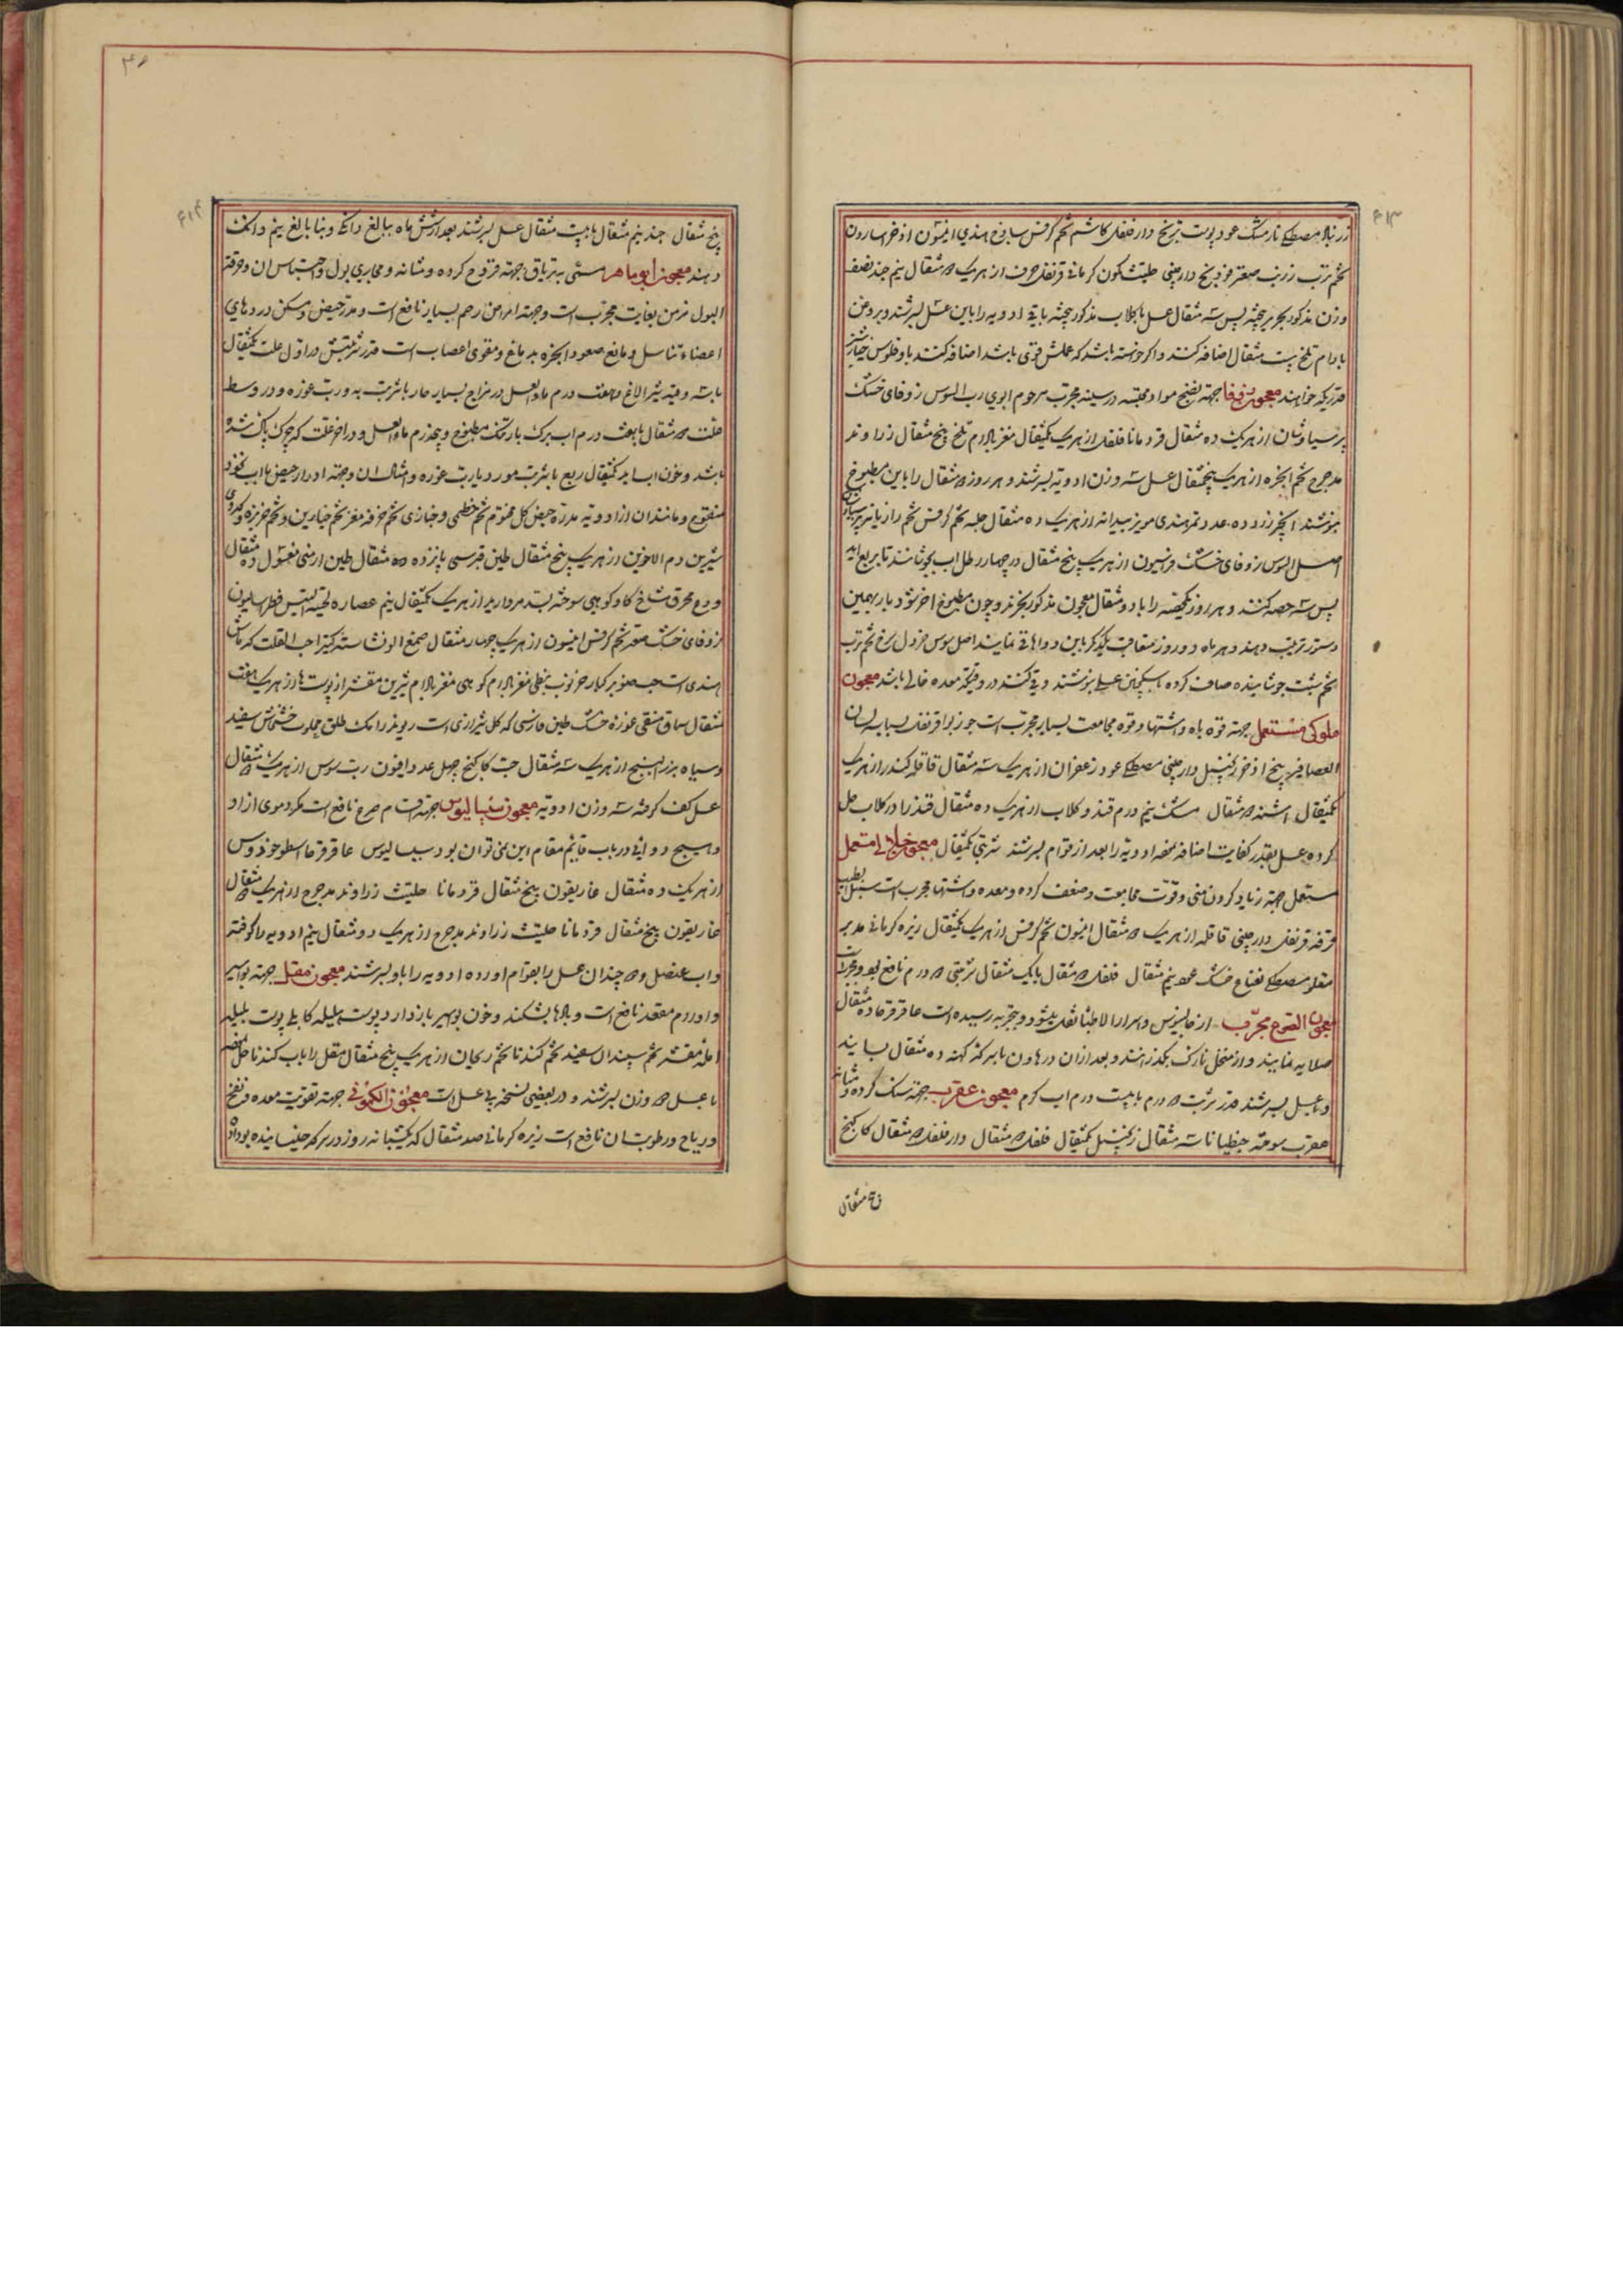 ۶۱۳
زرنباد مصطکی نارمشک عود پوست ترنج دار فلفل کاشم تخم کرفس ساذج هندی افیتمون اذخر اسارون
تخم ترب زرنب صعتر فودنج دارچینی حلتیت کمون کرمانی قرنفل حرف از هریک مثقال نیم جند نصف
وزن مذکور بحریر بیخته پس سه مثقال عسل با جلاب مذکور پخته باقی ادویه را باین عسل بسرشند و بروغن
بادام تلخ بیست مثقال اضافه کنند و اگر خواسته باشد که عملش قوی باشد اضافه کنند با و فلوس خیارشنبر
قدریکه خواهند معجون زوفا جهة نضج مواد مجتمعه در سینه مجرب مرحوم ابوی رب السوس زوفای خشک
پرسیاوشان از هریک ده مثقال قردمانا فلفل از هریک یکمثقال مغز بادام تلخ پنج مثقال زراوند
مدحرج تخم انجره از هریک پنجمثقال عسل سه وزن ادویه بسرشند و هر روز مثقال را باین مطبوخ
بنوشند انجیر زرد ده عدد تمرهندی مویز بیدانه از هریک ده مثقال حلبه تخم کرفس تخم رازیانه پرسیاوشان
اصل السوس زوفای خشک فراسیون از هریک پنج مثقال در چهار رطل اب بجوشانند تا بربع اید
پس سه حصه کنند و هر روز یکحصه را با دو مثقال معجون مذکور بخورند و چون مطبوخ اخر شود باز بهمین
دستور ترتیب دهند و هر ماه دو روز متعاقب یکدیگر باین دواها قی نمایند اصل سوس خردل سرخ تخم ترب
تخم شبت جوشانیده صاف کرده با سکنجبین عسلی بنوشند و قی کنند در وقتیکه معده خالی باشد معجون
ملوکی مستعمل جهة قوه باه و اشتها و قوه مجامعت بسیار مجرب است جوزبوا قرنفل بسباسه لسان
العصافیر بیخ اذخر زنجبیل دارچینی مصطکی عود زعفران از هریک سه مثقال قاقله کندر از هریک
یکمثقال اشنه مثقال مشک نیم درم قند و گلاب از هریک ده مثقال قند را در گلاب حل
کرده عسل بقدر کفایت اضافه نموده ادویه را بعد از قوام بسرشند شربتی یکمثقال معجون جلالی مستعمل
مستعمل جهة زیاد کردن منی و قوت مجامعت و ضعف گرده و معده و اشتها مجرب است سنبل الطیب
قرفه قرنفل دارچینی قاقله از هریک مثقال انیسون تخم کرفس از هریک یکمثقال زیره کرمانی مدبر
مقلو مصطکی نعناع خشک نیم مثقال فلفل مثقال بابک مثقال شربتی درم نافع بود و مجربست
معجون الصرع مجرب از جالینوس و اسرار الاطبا نقل میشود و بتجربه رسیده است عاقرقرحا ده مثقال
صلایه نمایند و از منخل نازک بگذرانند و بعد از ان در هاون با سرکه کهنه ده مثقال بسایند
و با عسل بسرشند قدر شربت درم با بیست درم اب گرم معجون عقرب جهة سنک گرده و مثانه
عقرب سوخته جنطیانا سه مثقال زنجبیل یکمثقال فلفل مثقال دار فلفل مثقال کاکنج
پنج مثقال
۶۱۴
پنج مثقال جند نیم مثقال با بیست مثقال عسل بسرشند بعد از شش ماه ببالغ دانگی و بنابالغ نیم دانک
دهند معجون ابو ماهر مسمی به تریاق جهة قروح گرده و مثانه و مجاری بول و احتباس ان و حرقة
البول مزمن بغایت مجرب است و جهة امراض رحم بسیار نافع است و مدر حیض و مسکن دردهای
اعضاء تناسل و مانع صعود ابخره بدماغ و مقوی اعصاب است قدر شربتش در اول علت یکمثقال
باسه وقیه شیر الاغ و هفت درم ماء العسل در مزاج بسیار حار با شربت به و رب غوره و در وسط
علت مثقال با هفت درم اب برک بارتنک مطبوخ و پنجدرم ماء العسل و در اخر علت که چرک پاک شده
باشد و خون اب اید یکمثقال ربع با شربت مورد یا رب غوره و امثال ان و جهة ادرار حیض با اب نخود
منقوع و مانند ان از ادویه مدره حیض گل مختوم تخم خطمی و خبازی تخم خرفه مغز تخم خیارین و تخم خربزه و کدوی
شیرین دم الاخوین از هریک پنج مثقال طین قبرسی پانزده مثقال طین ارمنی مغسول ده مثقال
ودع محرق شاخ گاو کوهی سوخته بسد مروارید از هریک یکمثقال نیم عصاره لحیة التیس فطراسالیون
زوفای خشک صعتر تخم کرفس انیسون از هریک چهار مثقال صمغ الو نشاسته کتیرا حب القلت که ماش
هندی است حب صنوبر کبار خرنوب نبطی مغز بادام کوهی مغز بادام شیرین مقشر از پوستها از هریک هفت
مثقال سماق منقی غوره خشک طین فارسی که گل شیرازی است ریوند رامک طلق محلوب خشخاش سفید
و سیاه بزر البنج از هریک سه مثقال حب کاکنج چهل عدد افیون رب سوس از هریک مثقال
عسل کف گرفته سه وزن ادویه معجون سیسالیوس جهة اقسام صرع نافع است مگر دموی ازاد
و هیچ دوائی در باب قایم مقام این نمی توان بود سیسالیوس عاقرقرحا اسطوخودوس
از هریک ده مثقال غاریقون پنج مثقال قردمانا حلتیت زراوند مدحرج از هریک مثقال
غاریقون پنج مثقال قردمانا حلتیت زراوند مدحرج از هریک دو مثقال نیم ادویه را کوفته
و اب عنصل و چندان عسل را بقوام اورده ادویه را با و بسرشند معجون مقل جهة بواسیر
و اورام مقعد نافع است و بادها بشکند و خون بواسیر باز دارد پوست هلیله کابلی پوست بلیله
امله مقشر تخم سپندان سفید تخم گندنا تخم ریحان از هریک پنج مثقال مقل را باب گندنا حل نموده
با عسل وزن بسرشند و در بعضی نسخه بی عسل است معجون الکمونی جهة تقویت معده و نفخ
و ریاح و رطوبت ان نافع است زیره کرمانی صد مثقال که یکشبانه روز در سرکه خیسانیده بوداده